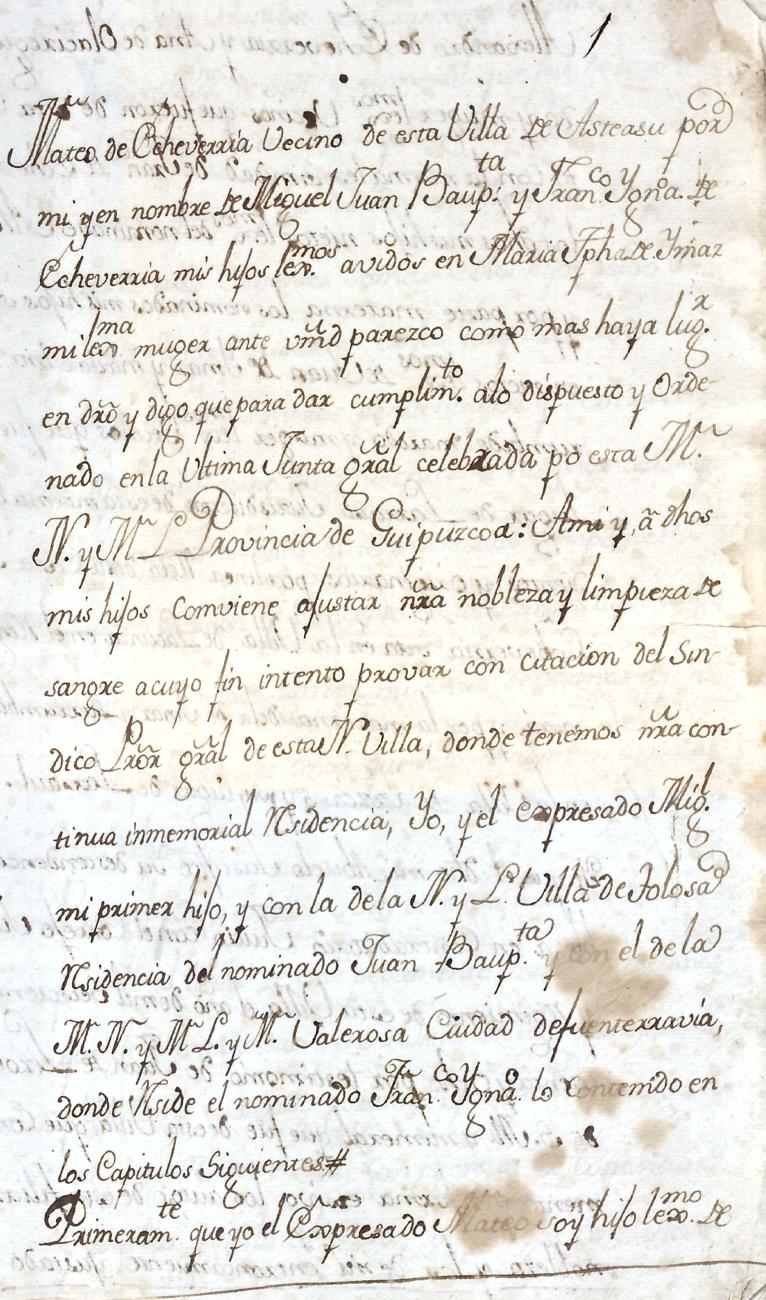 1
Mateo de Echeverria Vecino de esta Villa de Asteasu por
mi y en nombre de Miguel Juan Baup.ta y Fran.co Ygn.o de
Echeverria mis hijos lex.mos avidos en Maria Jpha de Ymaz
mi lex.ma muger ante vmd parezco como mas haya lug.r
en dro y digo que para dar cumplim.to alo dispuesto y Orde-
nado en la Ultima Junta gral celebrada po esta M.
N. y M L Provincia de Guipuzcoa: Ami y, a dhos
mis hijos comviene ajustar nra nobleza y limpieza de
sangre acuyo fin intento provar con citacion del Sin-
dico Pror gral de esta N. Villa, donde tenemos nra con-
tinua inmemorial Residencia, Yo, y el expresado Mig.l
mi primer hijo, y con la de la N. y L. Villa de Tolosa
Residencia del nominado Juan Baup.ta y con el de la
M. N. y M L. y M. Valerosa Ciudad defuenterravia,
donde Reside el nominado Fran.co Ygn.o lo Contenido en
los Capitulos Siguientes#
Primeram.te que yo el Expresado Mateo soy hijo lex.mo de